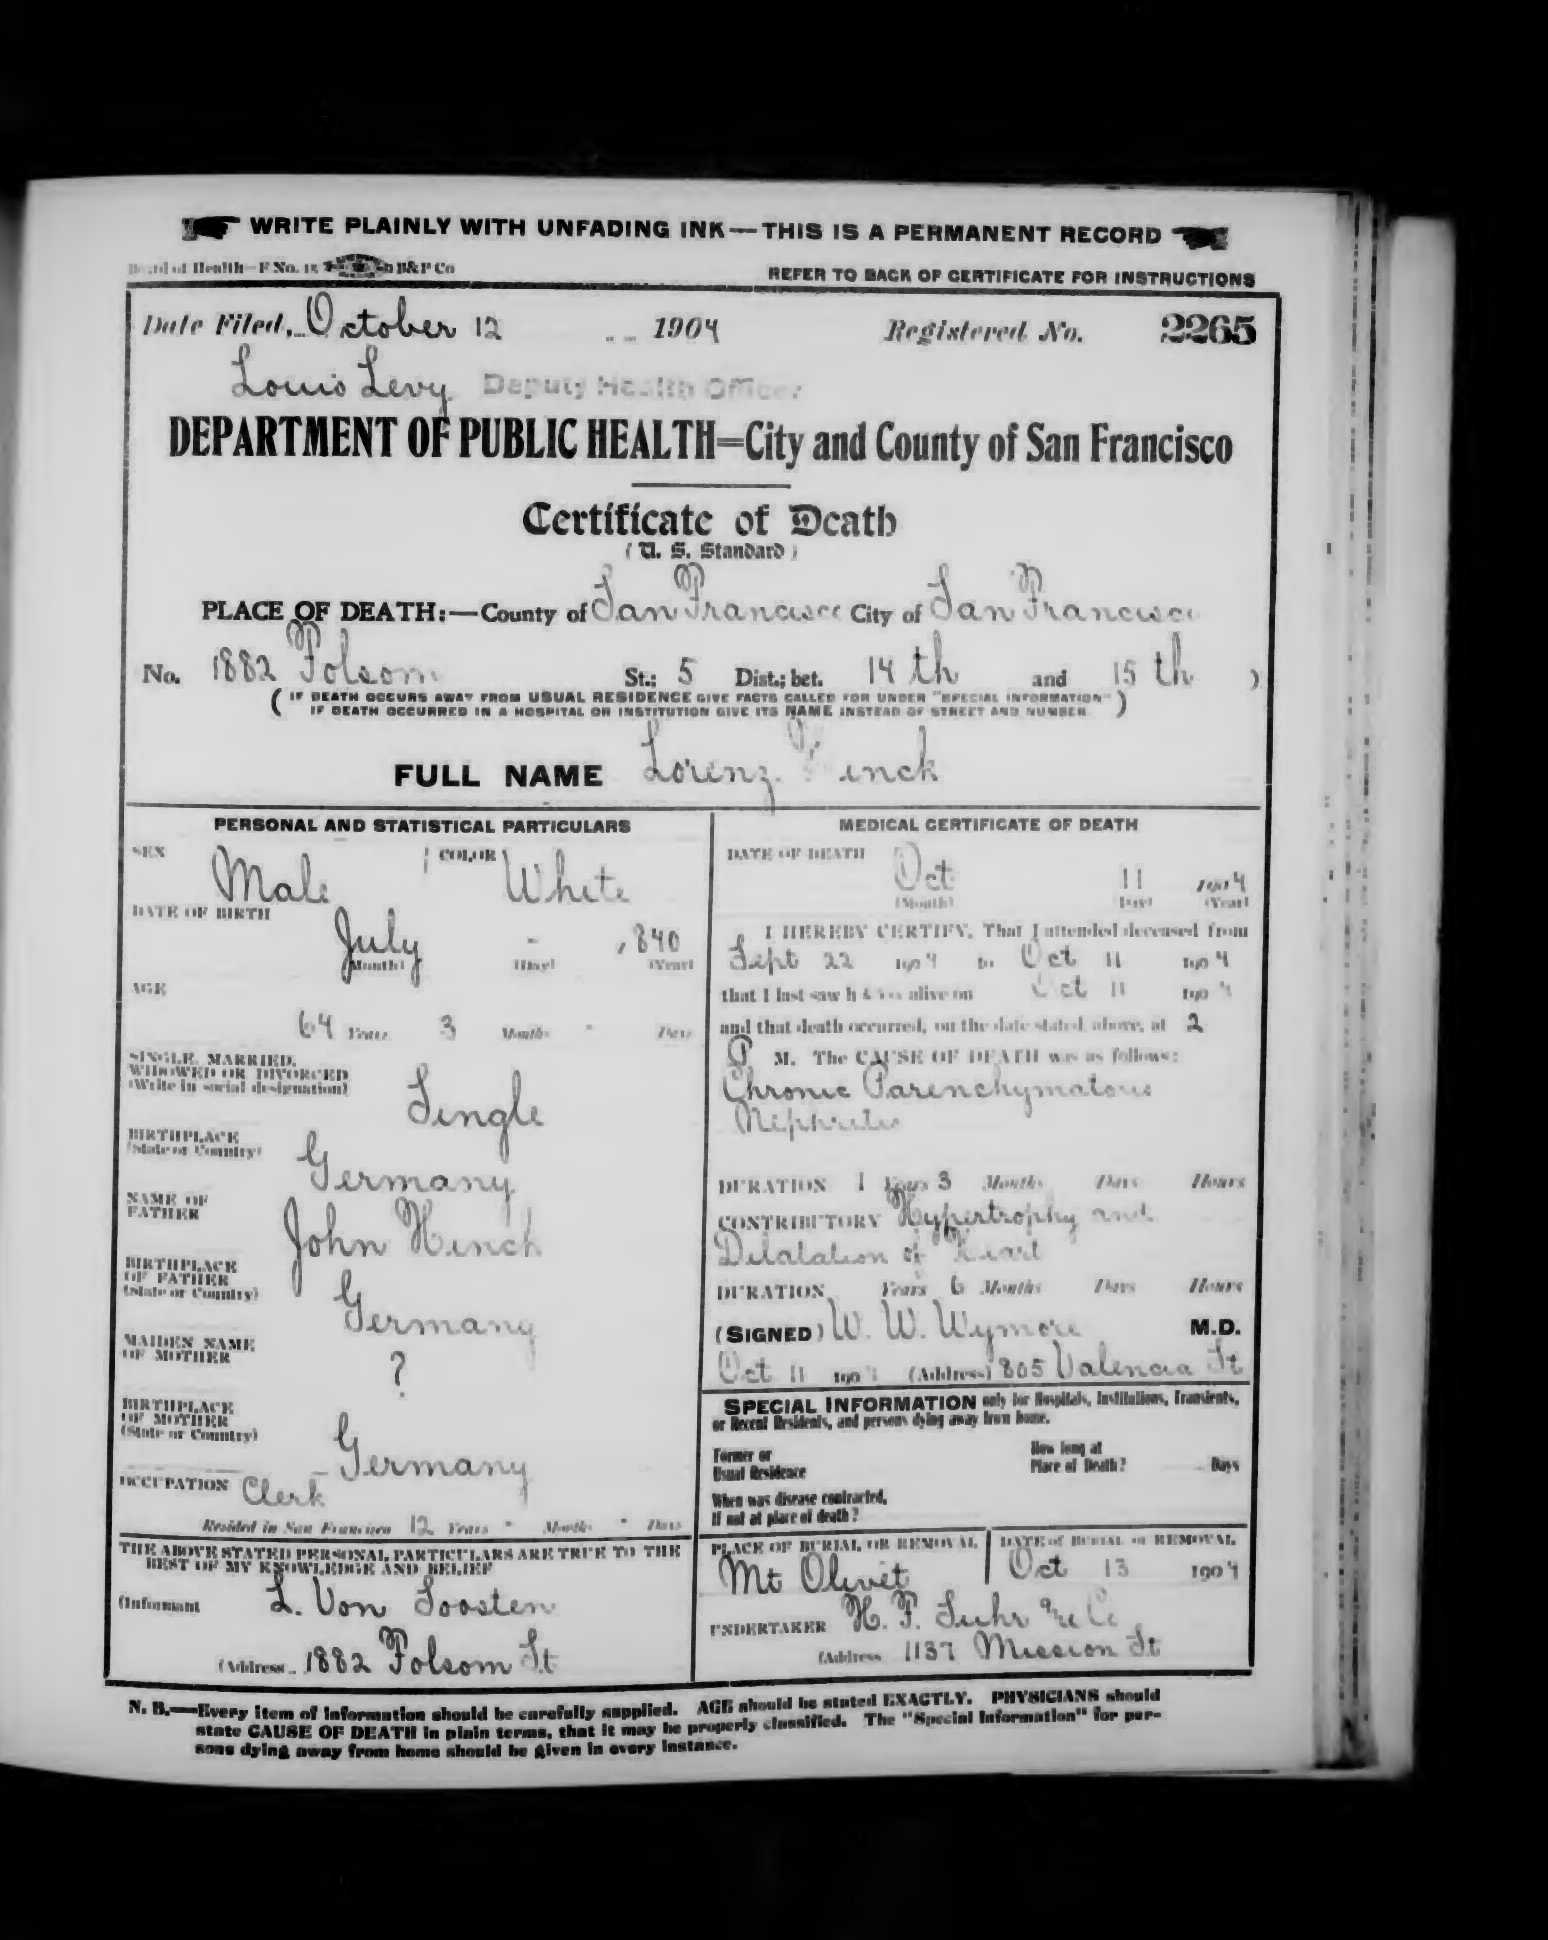 WRITE PLAINLY WITH UNFADING INK—THIS IS A PERMANENT RECORD
Board of Health—F No. 15 B&P Co
REFER TO BACK OF CERTIFICATE FOR INSTRUCTIONS
Date Filed, October 12 1904 Registered No. 2265
Louis Levy Deputy Health Officer
DEPARTMENT OF PUBLIC HEALTH=City and County of San Francisco
Certificate of Death
(U. S. Standard)
PLACE OF DEATH:—County of San Francisco City of San Francisco
No. 1882 Folsom St.; 5 Dist.; bet. 14th and 15th )
( IF DEATH OCCURS AWAY FROM USUAL RESIDENCE GIVE FACTS CALLED FOR UNDER "SPECIAL INFORMATION" )
IF DEATH OCCURRED IN A HOSPITAL OR INSTITUTION GIVE ITS NAME INSTEAD OF STREET AND NUMBER.
FULL NAME Lorenz
PERSONAL AND STATISTICAL PARTICULARS
SEX Male COLOR White
DATE OF BIRTH
July - 1840
(Month) (Day) (Year)
AGE
64 Years 3 Months - Days
SINGLE, MARRIED,
WIDOWED OR DIVORCED
(Write in social designation) Single
BIRTHPLACE
(State or Country) Germany
NAME OF
FATHER John Hinck
BIRTHPLACE
OF FATHER
(State or Country) Germany
MAIDEN NAME
OF MOTHER ?
BIRTHPLACE
OF MOTHER
(State or Country) Germany
OCCUPATION Clerk
Resided in San Francisco 12 Years - Months - Days
THE ABOVE STATED PERSONAL PARTICULARS ARE TRUE TO THE
BEST OF MY KNOWLEDGE AND BELIEF
(Informant L. Von Soosten
(Address 1882 Folsom St
MEDICAL CERTIFICATE OF DEATH
DATE OF DEATH
Oct 11 1904
(Month) (Day) (Year)
I HEREBY CERTIFY, That I attended deceased from
Sept 22 1904 to Oct 11 1904
that I last saw h im alive on Oct 11 1904
and that death occurred, on the date stated above, at 2
P M. The CAUSE OF DEATH was as follows:
Chronic Parenchymatous
Nephritis
DURATION 1 Years 3 Months Days Hours
CONTRIBUTORY Hypertrophy and
Dilatation of Heart
DURATION Years 6 Months Days Hours
(SIGNED) W. W. Wymore M.D.
Oct 11 1904 (Address) 805 Valencia St
SPECIAL INFORMATION only for Hospitals, Institutions, Transients,
or Recent Residents, and persons dying away from home.
Former or
Usual Residence
How long at
Place of Death? Days
When was disease contracted,
If not at place of death?
PLACE OF BURIAL OR REMOVAL
Mt Olivet
DATE of BURIAL or REMOVAL
Oct 13 1904
UNDERTAKER H. F. Suhr & Co
(Address 1137 Mission St
N. B.—Every item of information should be carefully supplied. AGE should be stated EXACTLY. PHYSICIANS should
state CAUSE OF DEATH in plain terms, that it may be properly classified. The "Special Information" for per-
sons dying away from home should be given in every instance.